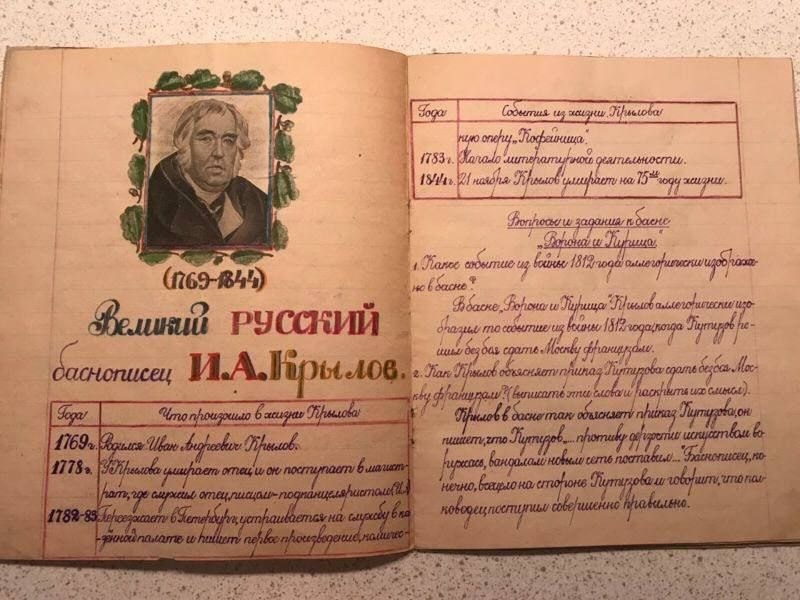 (1769-1844)
Великий РУССКИЙ
баснописец И.А.Крылов.
Года Что произошло в жизни Крылова
1769г. Родился Иван Андреевич Крылов.
1778г. У Крылова умирает отец, и он поступает в магист-
рат, где служил отец, писцом-подканцеляристом
1782-83 Переезжает в Петербург, устраивается на службу в ка-
зённой палате и пишет первое произведение, комичес-
Года События из жизни Крылова
кую оперу „Кофейница".
1783г. Начало литературной деятельности.
1844г. 21 ноября Крылов умирает на 75 году жизни.
Вопросы и задания к басне
„Ворона и Курица"
1. Какое событие из войны 1812 года аллегорически изображе-
но в басне?
В басне „Ворона и Курица" Крылов аллегорически изо-
бразил то событие из войны 1812 года, когда Кутузов ре-
шил без боя сдать Москву французам.
2. Как Крылов объясняет приказ Кутузова сдать без боя Мос-
кву французам? (выписать эти слова и раскрыть их смысл).
Крылов в басне так объясняет приказ Кутузова, он
пишет, что Кутузов „... противу дерзости искусством во-
ружась, вандалам новым сеть поставил..." Баснописец, ко-
нечно, всецело на стороне Кутузова и говорит, что пол-
ководец поступил совершенно правильно.